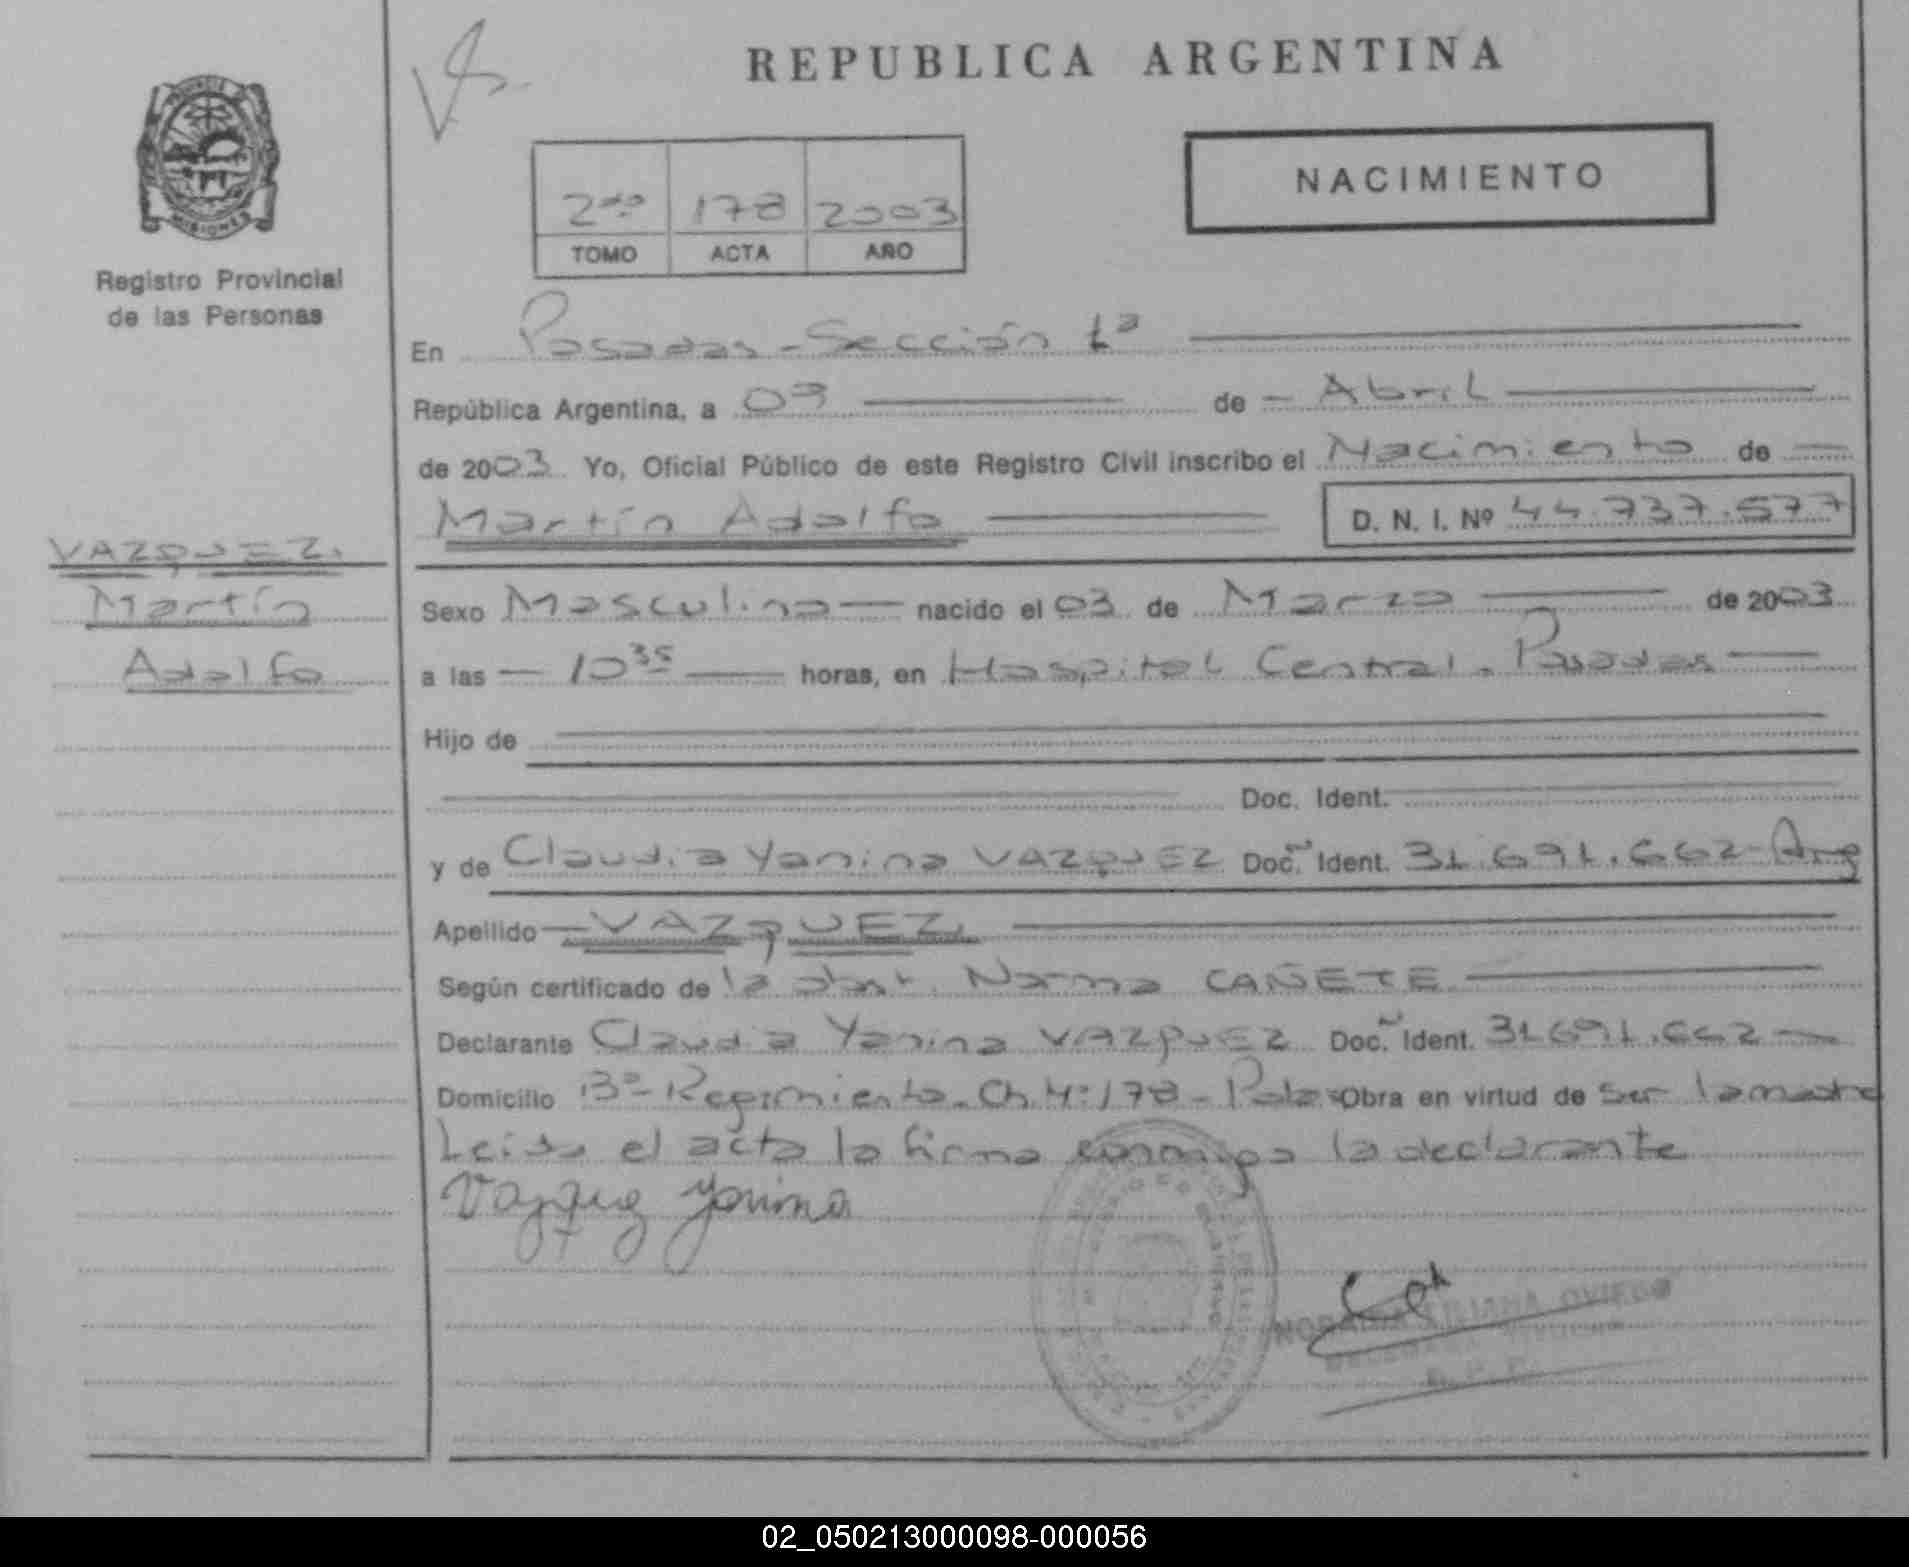 REPUBLICA ARGENTINA
NACIMIENTO
2do 178 2003
TOMO ACTA AÑO
MISIONES
Registro Provincial
de las Personas
VAZQUEZ.
Martín
Adolfo
En Posadas - Sección 1ª
República Argentina, a 03 de Abril
de 2003 Yo, Oficial Público de este Registro Civil inscribo el Nacimiento de
Martín Adolfo D. N. I. Nº 44.737.577
Sexo Masculino nacido el 03 de Marzo de 2003
a las 10 35 horas, en Hospital Central - Posadas
Hijo de
Doc. Ident.
y de Claudia Yanina VAZQUEZ Doc. Ident. 31.691.662 - Arg
Apellido VAZQUEZ
Según certificado de la obst. Norma CAÑETE
Declarante Claudia Yanina VAZQUEZ Doc. Ident. 31.691.662
Domicilio Bº Regimiento - Ch. 4: 178 - Pdas Obra en virtud de ser la madre
Leída el acta la firma conmigo la declarante
Vazquez Yanina
LILIANA OVIEDO
02_050213000098-000056